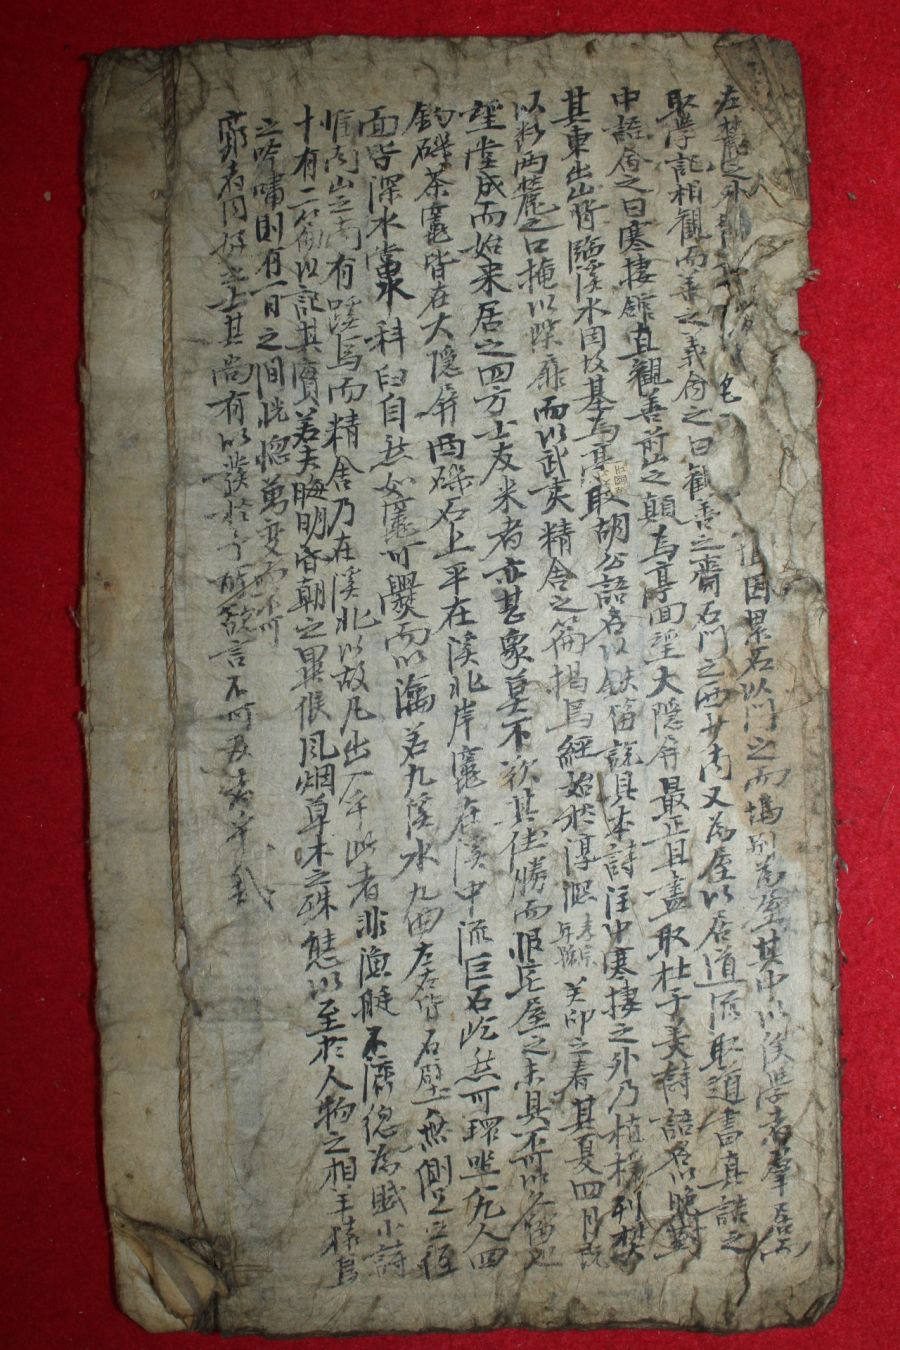 左麓之外因累石以門之而塢別為屋其中以俟學者羣居而
取學記相觀而善之義命之曰觀善之齋石門之西少南又為屋以居道流取道書真誥之
中語命之曰寒棲館直觀善前山之顛為亭回望大隱屏最正且盡取杜子美詩語名以晚對
其東出山背臨溪水因故基為亭取胡公語名以鉄笛說具本詩注中寒棲之外乃植楥列樊
以斷兩麓之口掩以柴扉而以武夷精舍之扁揭焉經始於淳熙孝宗年號癸卯之春其夏四月既
望堂成而始来居之四方士友来者亦甚衆莫不歎其佳勝而恨它屋之未具不可以久留也
釣磯茶竈皆在大隱屏西磯石上平在溪北岸竈在溪中流巨石屹然可環坐八九人四
面皆深水當中科臼自然如竈可爨而以瀹茗九溪水九曲左右皆石壁無側足之徑
惟南山之南有蹊焉而精舍乃在溪北以故凡出入乎此者非漁艇不濟總為賦小詩
十有二篇以記其實若夫晦明昏朝之異候風烟草木之殊態以至於人物之相羊猿鳥
之吟嘯則有一日之間恍惚萬变而不可
窮者同好之士其尚有以發於予所欲言不可及者乎哉